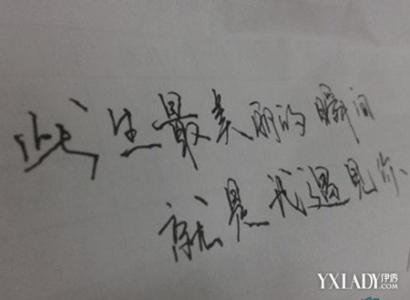 此生最美丽的瞬间
就是我遇见你
YXLADY伊秀
.COM